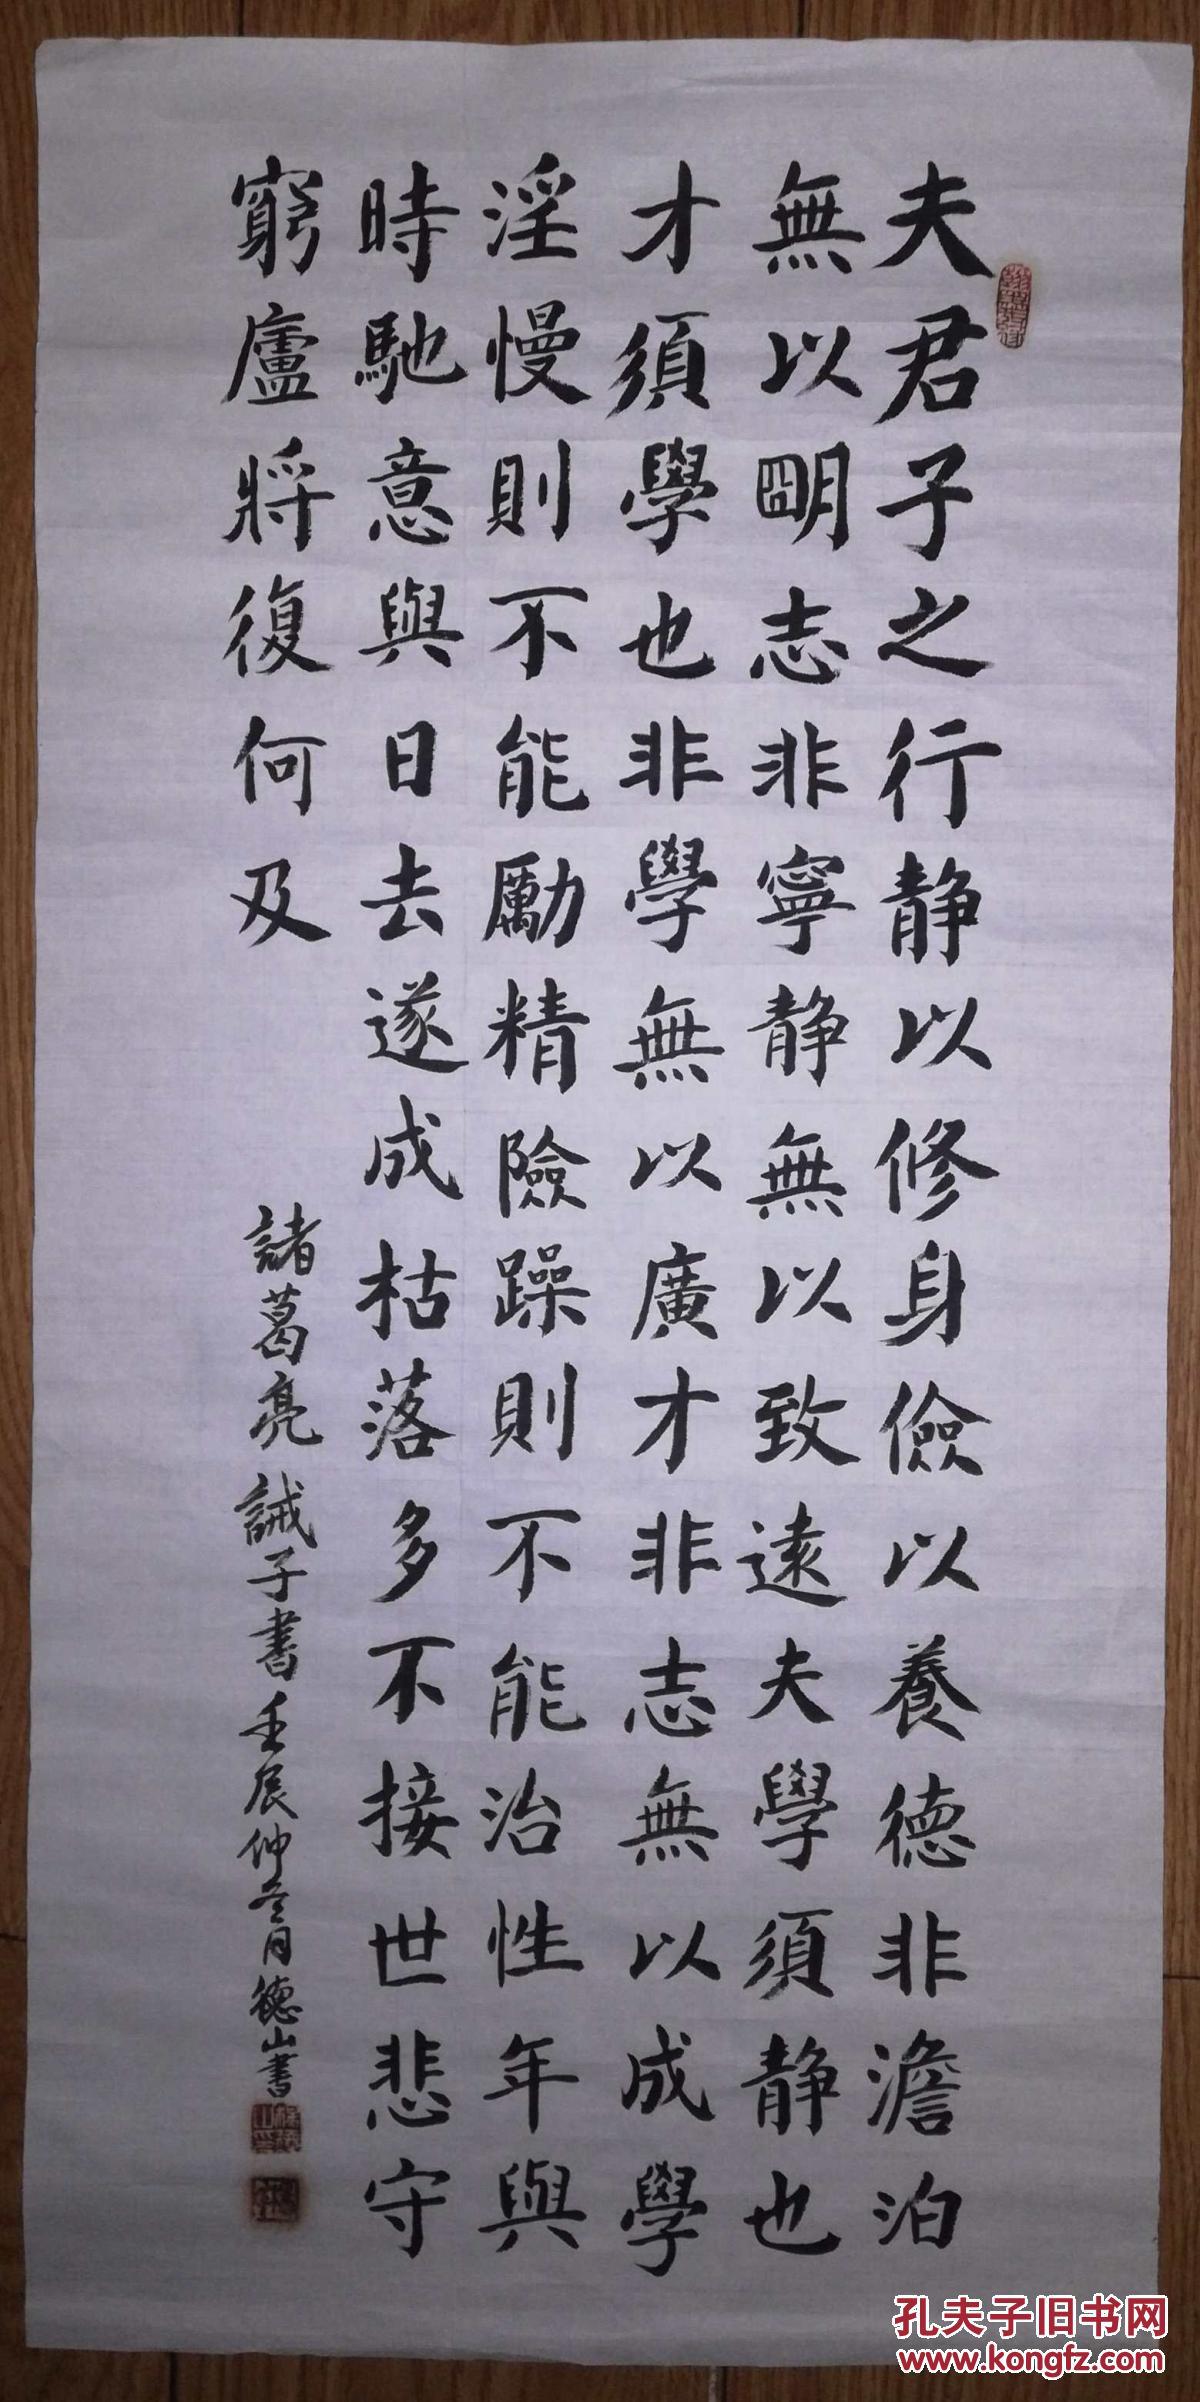 夫君子之行静以修身儉以養德非澹泊
無以明志非寧静無以致遠夫學須静也
才須學也非學無以廣才非志無以成學
淫慢則不能勵精險躁則不能治性年與
時馳意與日去遂成枯落多不接世悲守
窮廬將復何及
諸葛亮誡子書壬辰仲冬月德山書
孔夫子旧书网
www.kongfz.com